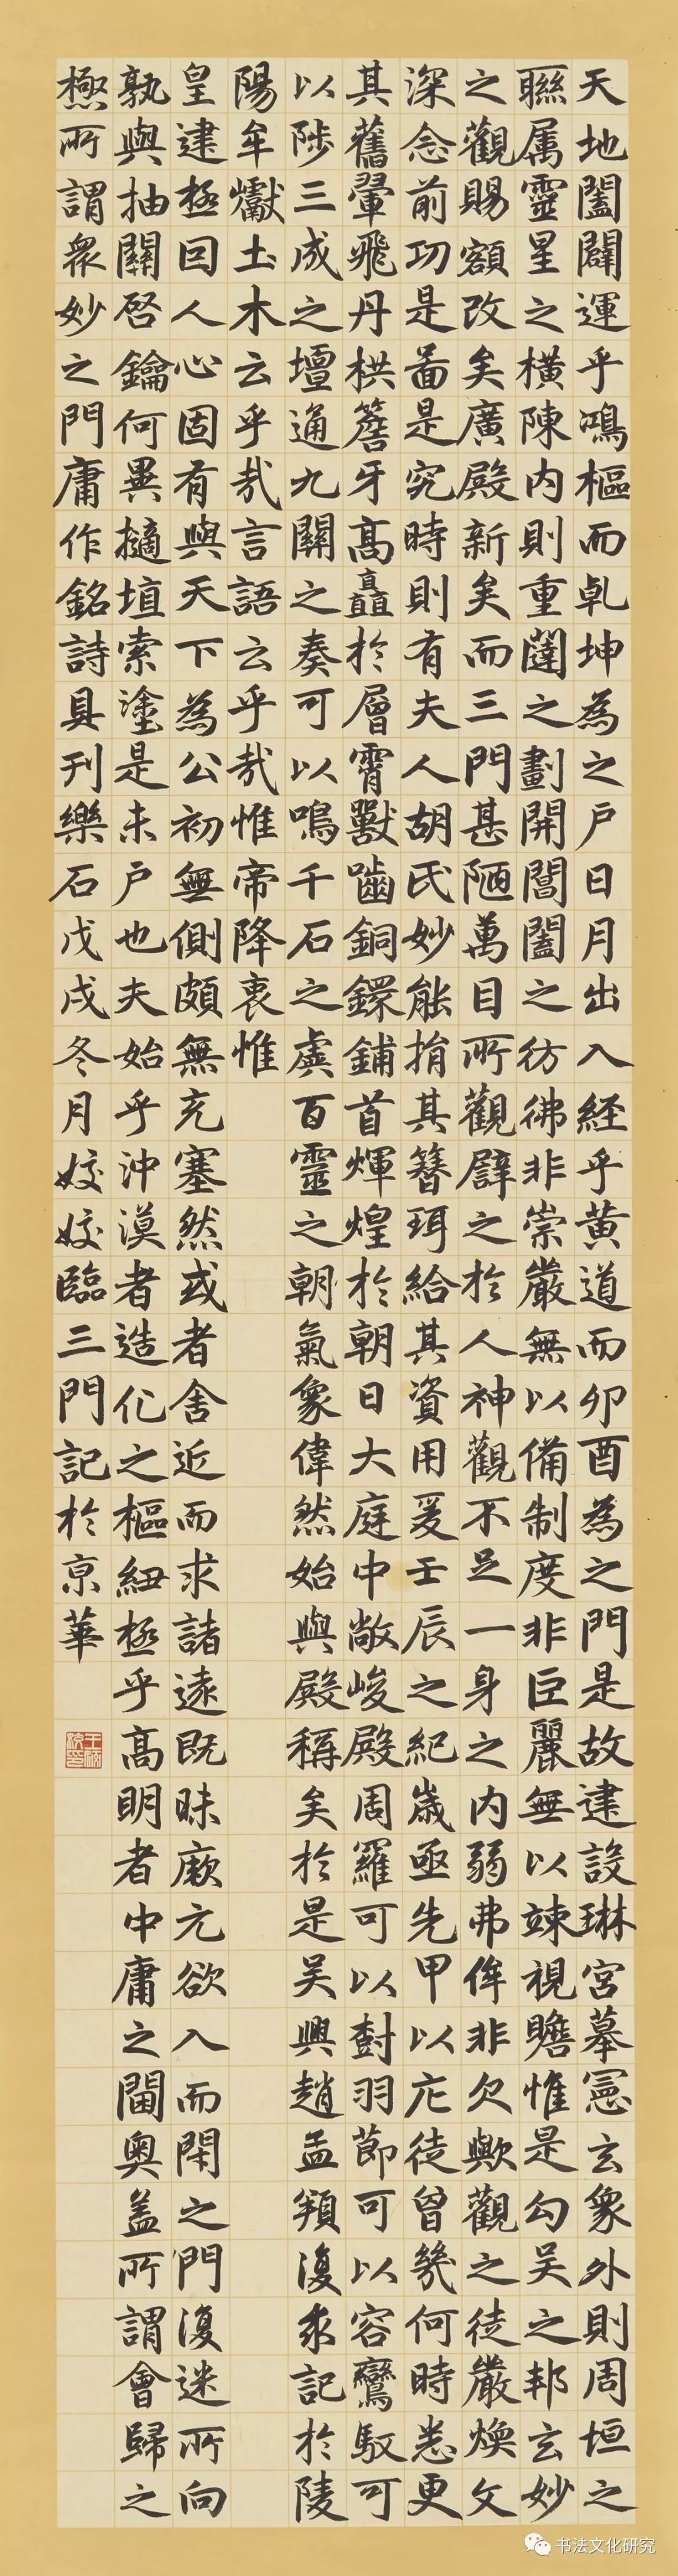 天地闔闢運乎鴻樞而乹坤為之戶日月出入経乎黄道而卯酉為之門是故建設琳宮摹憲玄象外則周垣之
聯属靈星之橫陳内則重闥之劃開閶闔之彷彿非崇嚴無以備制度非巨麗無以竦視瞻惟是勾吴之邦玄妙
之觀賜額改矣廣殿新矣而三門甚陋萬目所觀譬之於人神觀不足一身之内弱弗侔非欠歟觀之徒嚴煥文
深念前功是啚是究時則有夫人胡氏妙能捐其簪珥給其資用爰壬辰之紀歲亟先甲以庀徒曾幾何時悉更
其舊翬飛丹栱簷牙高矗於層霄獸齒銅鐶鋪首煇煌於朝日大庭中敞峻殿周羅可以尌羽節可以容鸞馭可
以陟三成之壇通九關之奏可以鳴千石之虡百靈之朝氣象偉然始與殿稱矣於是吴興趙孟頫復求記於陵
陽牟巘土木云乎㢤言語云乎㢤惟帝降衷惟
皇建極囙人心固有與天下為公初無側頗無充塞然或者舍近而求諸遠既昧厥元欲入而閇之門復迷所向
孰與抽關啓鑰何異擿埴索塗是未戶也夫始乎沖漠者造化之樞紐極乎高明者中庸之閫奥盖所謂會歸之
極所謂衆妙之門庸作銘詩具刊樂石戊戌冬月姣姣臨三門記於京華
书法文化研究